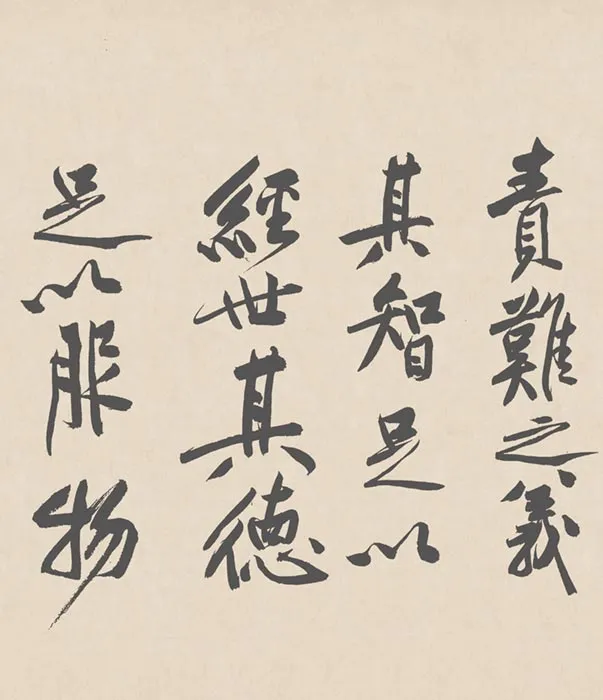 責難之義
其智足以
經世其德
足以服物